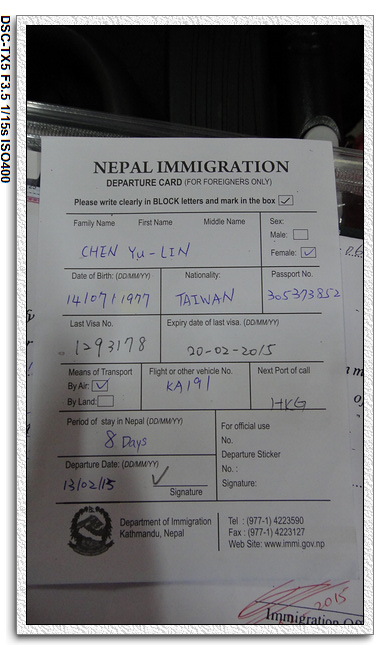 DSC-TX5 F3.5 1/15s ISO400
NEPAL IMMIGRATION
DEPARTURE CARD (FOR FOREIGNERS ONLY)
Please write clearly in BLOCK letters and mark in the box
Family Name First Name Middle Name Sex:
Male:
CHEN Yu-LIN Female:
Date of Birth: (DD/MM/YY) Nationality: Passport No.
14/07/1977 TAIWAN 305373852
Last Visa No. Expiry date of last visa. (DD/MM/YY)
1293178 20-02-2015
Means of Transport Flight or other vehicle No. Next Port of call
By Air: KA191
By Land: HKG
Period of stay in Nepal (DD/MM/YY) For official use
8 Days No.
Departure Sticker
Departure Date: (DD/MM/YY) No. :
13/02/15 Signature Signature:
Department of Immigration Tel : (977-1) 4223590
Kathmandu, Nepal Fax : (977-1) 4223127
Web Site: www.immi.gov.np
2015
Immigration